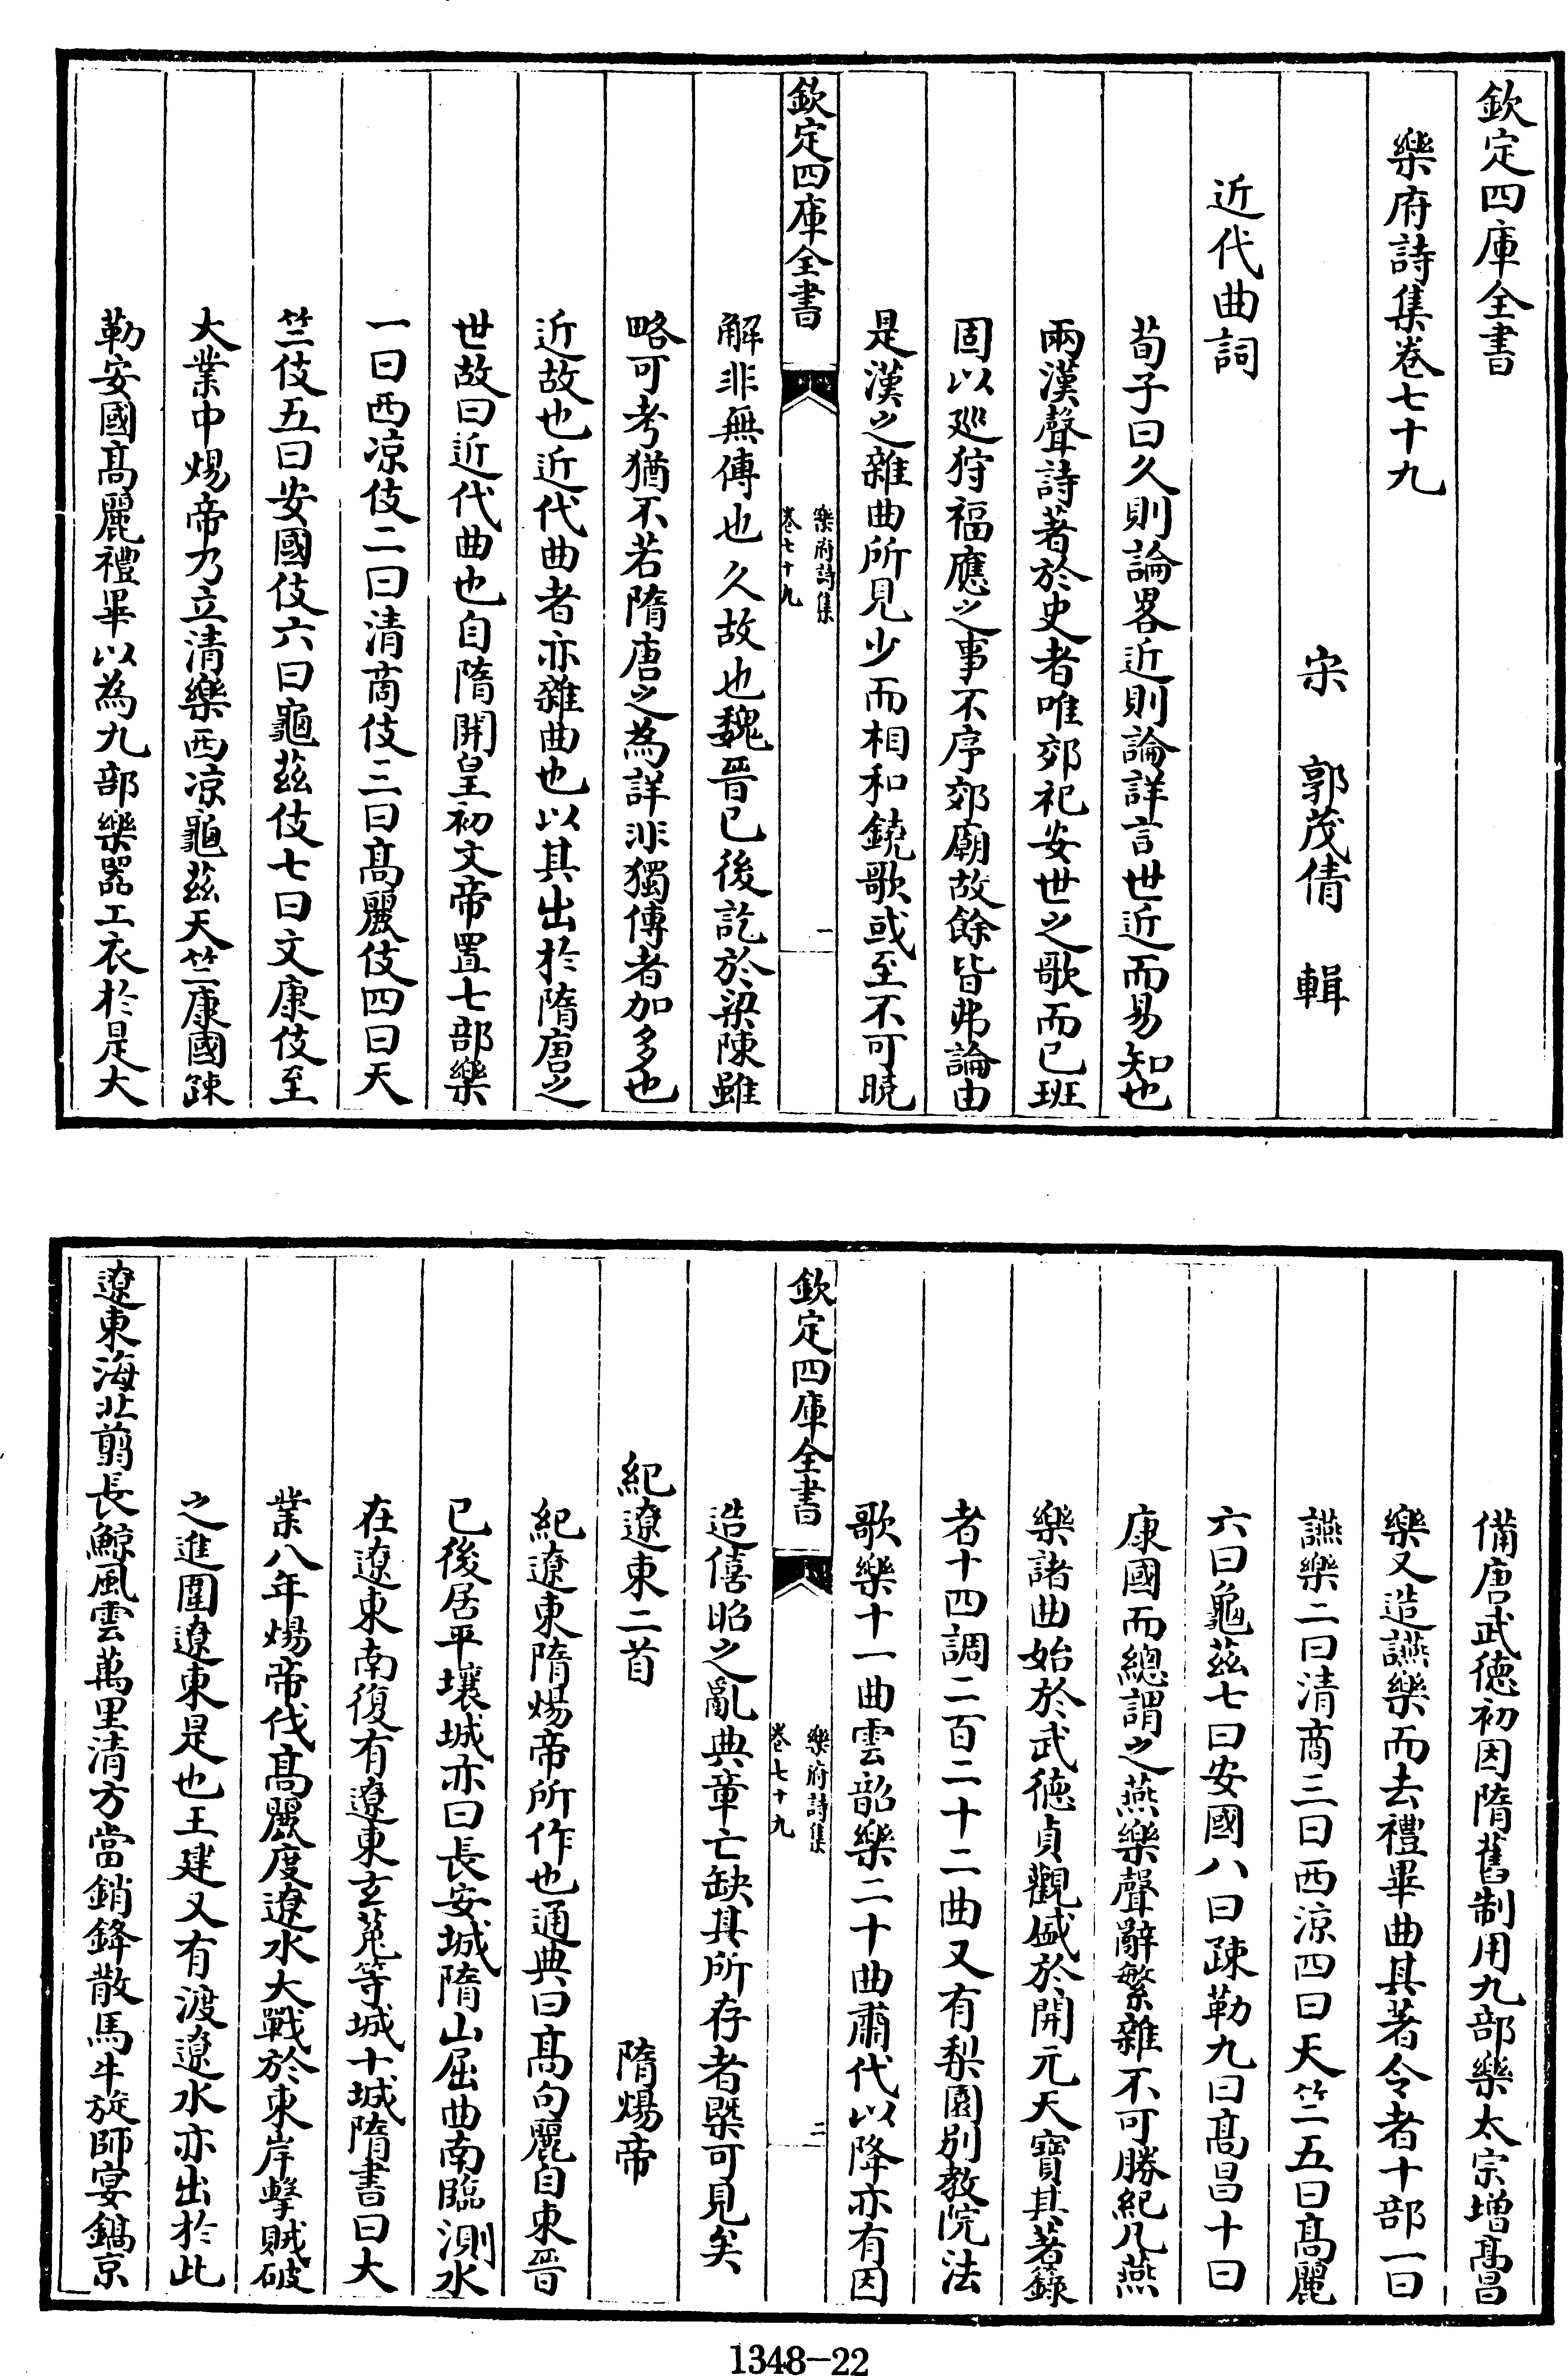 欽定四庫全書
樂府詩集卷七十九
宋 郭茂倩 輯
近代曲詞
荀子曰久則論畧近則論詳言世近而易知也
兩漢聲詩著於史者唯郊祀安世之歌而已班
固以廵狩福應之事不序郊廟故餘皆弗論由
是漢之雜曲所見少而相和鐃歌或至不可曉
欽定四庫全書
樂府詩集
卷七十九
一
解非無傳也久故也魏晉已後訖於梁陳雖
略可考猶不若隋唐之為詳非獨傳者加多也
近故也近代曲者亦雜曲也以其出於隋唐之
世故曰近代曲也自隋開皇初文帝置七部樂
一曰西凉伎二曰清商伎三曰髙麗伎四曰天
竺伎五曰安國伎六曰龜茲伎七曰文康伎至
大業中煬帝乃立清樂西凉龜茲天竺康國疎
勒安國髙麗禮畢以為九部樂器工衣於是大
備唐武徳初因隋舊制用九部樂太宗增髙昌
樂又造讌樂而去禮畢曲其著令者十部一曰
讌樂二曰清商三曰西涼四曰天竺五曰髙麗
六曰龜茲七曰安國八曰疎勒九曰髙昌十曰
康國而總謂之燕樂聲辭繁雜不可勝紀凡燕
樂諸曲始於武徳貞觀盛於開元天寶其著録
者十四調二百二十二曲又有梨園别教院法
歌樂十一曲雲韶樂二十曲肅代以降亦有因
欽定四庫全書
樂府詩集
卷七十九
二
造僖昭之亂典章亡缺其所存者槩可見矣
紀遼東二首 隋煬帝
紀遼東隋煬帝所作也通典曰髙句麗自東晉
已後居平壤城亦曰長安城隋山屈曲南臨浿水
在遼東南復有遼東玄菟等城十城隋書曰大
業八年煬帝伐髙麗度遼水大戰於東岸擊賊破
之進圍遼東是也王建又有渡遼水亦出於此
遼東海北翦長鯨風雲萬里清方當銷鋒散馬牛旋師宴鎬京
1348-22